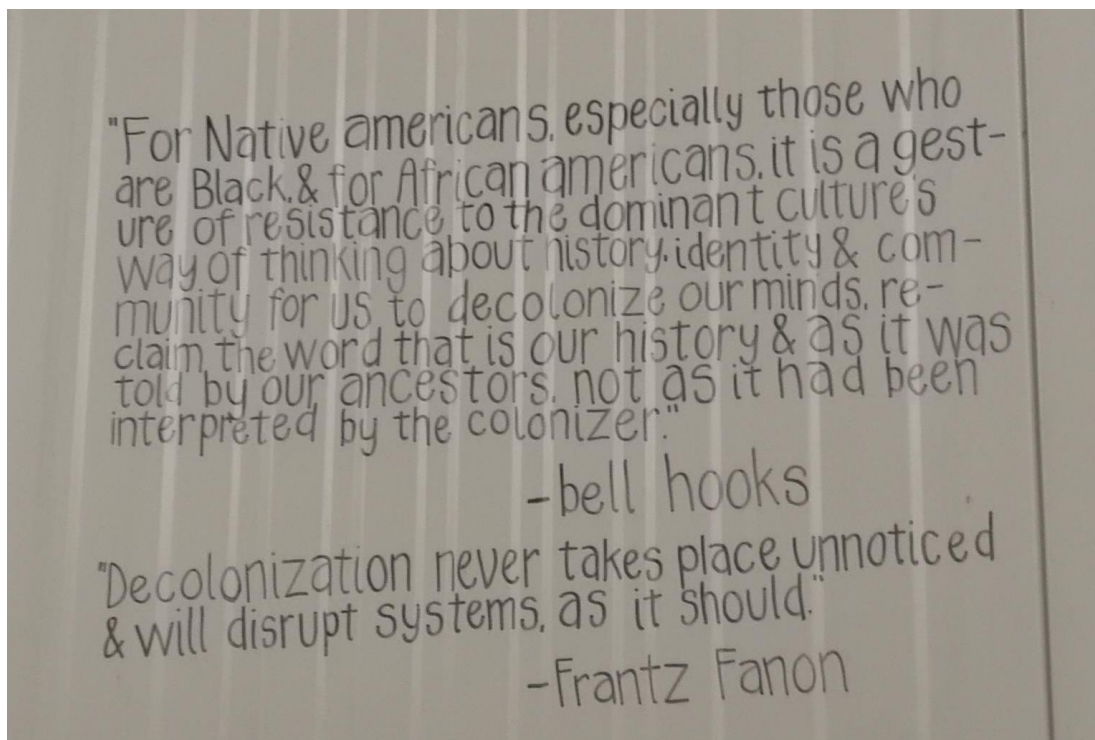 "For Native americans, especially those who
are Black, & for African americans, it is a gest-
ure of resistance to the dominant culture's
way of thinking about history, identity & com-
munity for us to decolonize our minds, re-
claim the word that is our history & as it was
told by our ancestors, not as it had been
interpreted by the colonizer."
-bell hooks
"Decolonization never takes place unnoticed
& will disrupt systems, as it should."
-Frantz Fanon